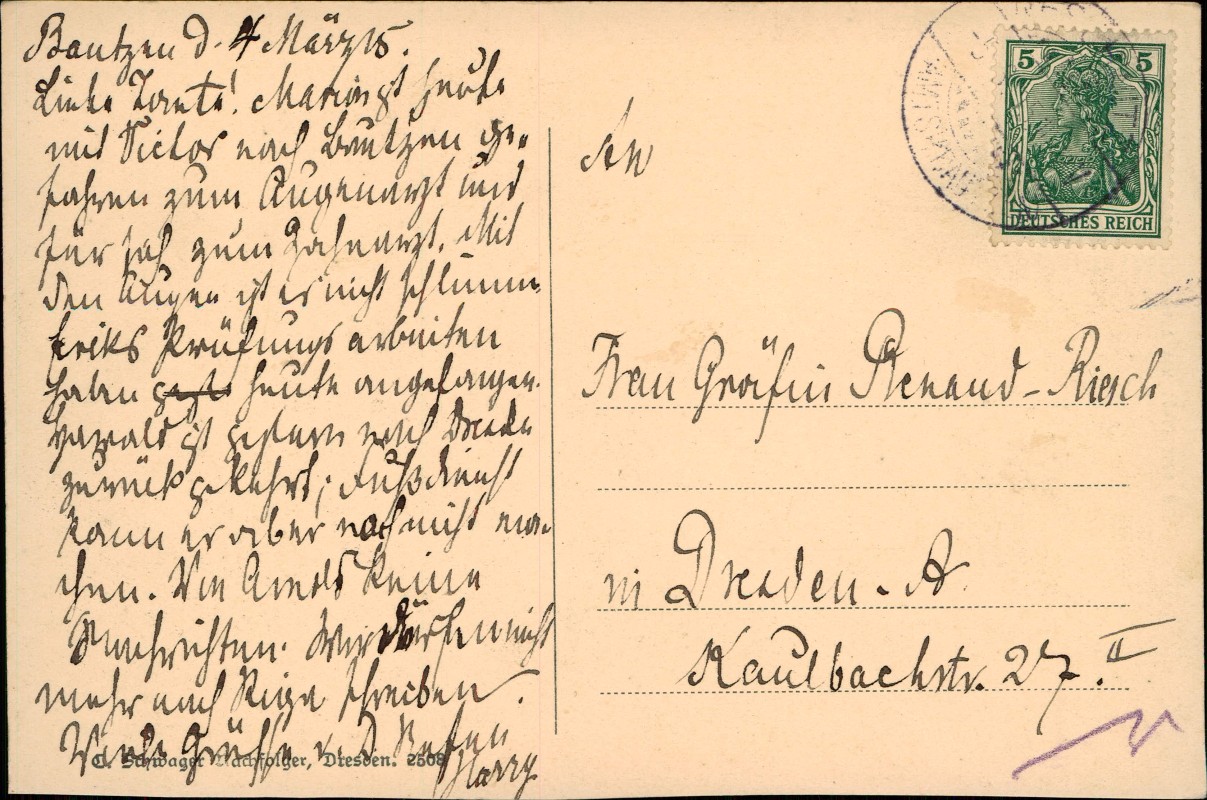 Bautzen d. 4 März 15.
Liebe Tante! Marion ist heute
mit Victor nach Bautzen ge-
fahren zum Augenarzt und
für sich zum Zahnarzt. Mit
den Augen ist es nicht schlimm.
Eriks Prüfungsarbeiten
haben heute angefangen.
Harald ist gestern nach Dresden
zurück gekehrt; Fußdienst
kann er aber noch nicht ma-
chen. Von Arnold keine
Nachrichten. Wir dürfen nicht
mehr nach Riga schreiben.
Viele Grüsse v. D. Neffen
Harry
C. Schwager Nachfolger, Dresden. 2508
5 5
DEUTSCHES REICH
An
Frau Gräfin Renaud-Riesch
in Dresden-A.
Kaulbachstr. 27. II